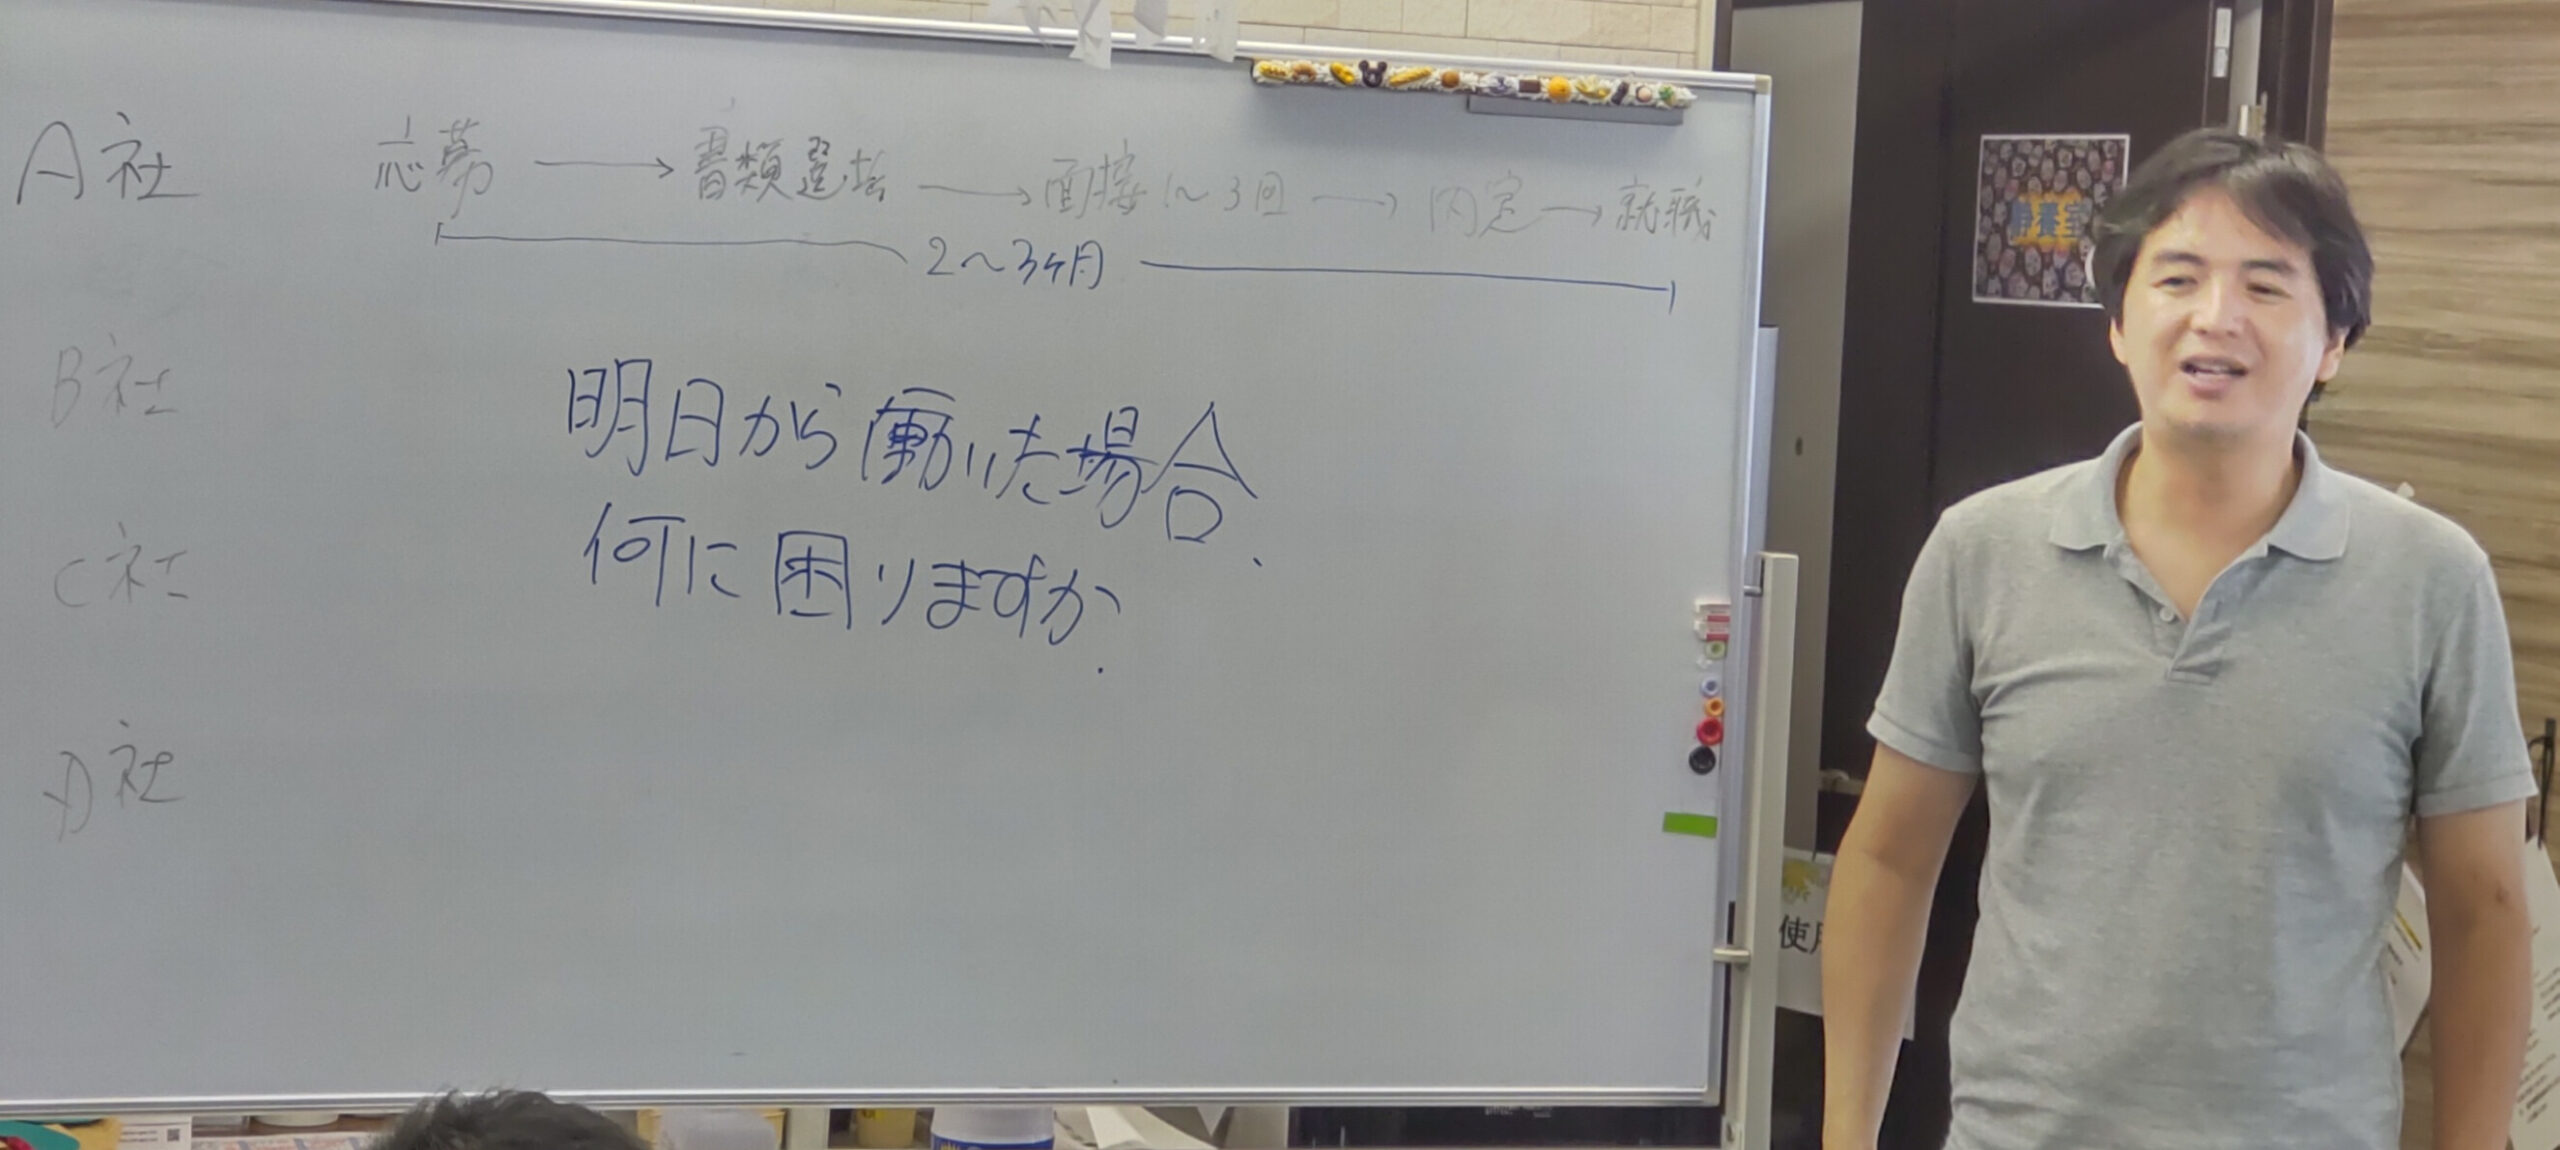 A社 応募 → 書類選考 → 面接1〜3回 → 内定 → 就職
2〜3ヶ月
B社
明日から働いた場合、
何に困りますか.
C社
D社
静養室